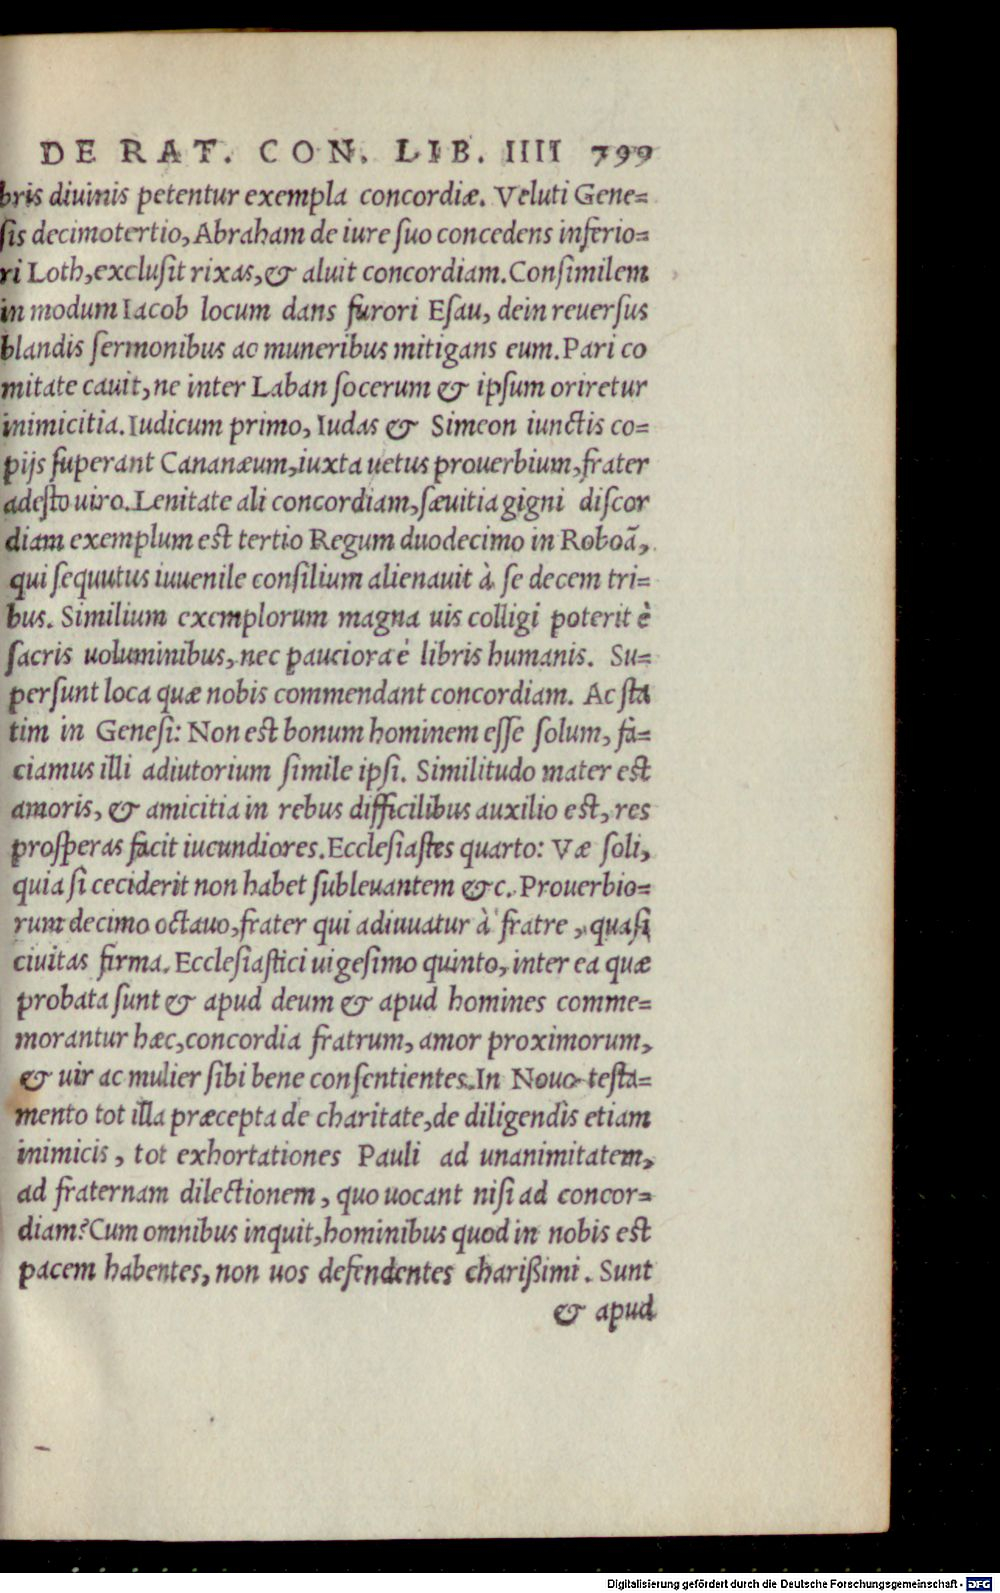 DE RAT. CON. LIB. IIII 799
bris diuinis petentur exempla concordiæ. Veluti Gene=
sis decimotertio, Abraham de iure suo concedens inferio=
ri Loth, exclusit rixas, & aluit concordiam. Consimilem
in modum Iacob locum dans furori Esau, dein reuersus
blandis sermonibus ac muneribus mitigans eum. Pari co
mitate cauit, ne inter Laban socerum & ipsum oriretur
inimicitia. Iudicum primo, Iudas & Simeon iunctis co=
pijs superant Cananæum, iuxta uetus prouerbium, frater
adesto uiro. Lenitate ali concordiam, sæuitia gigni discor
diam exemplum est tertio Regum duodecimo in Roboã,
qui sequutus iuuenile consilium alienauit à se decem tri=
bus. Similium exemplorum magna uis colligi poterit è
sacris uoluminibus, nec pauciora è libris humanis. Su=
persunt loca quæ nobis commendant concordiam. Ac sta
tim in Genesi: Non est bonum hominem esse solum, fa=
ciamus illi adiutorium simile ipsi. Similitudo mater est
amoris, & amicitia in rebus difficilibus auxilio est, res
prosperas facit iucundiores. Ecclesiastes quarto: Væ soli,
quia si ceciderit non habet subleuantem &c. Prouerbio=
rum decimo octauo, frater qui adiuuatur à fratre, quasi
ciuitas firma. Ecclesiastici uigesimo quinto, inter ea quæ
probata sunt & apud deum & apud homines comme=
morantur hæc, concordia fratrum, amor proximorum,
& uir ac mulier sibi bene consentientes. In Nouo testa=
mento tot illa præcepta de charitate, de diligendis etiam
inimicis, tot exhortationes Pauli ad unanimitatem,
ad fraternam dilectionem, quo uocant nisi ad concor=
diam? Cum omnibus inquit, hominibus quod in nobis est
pacem habentes, non uos defendentes charißimi. Sunt
& apud
Digitalisierung gefördert durch die Deutsche Forschungsgemeinschaft - DFG